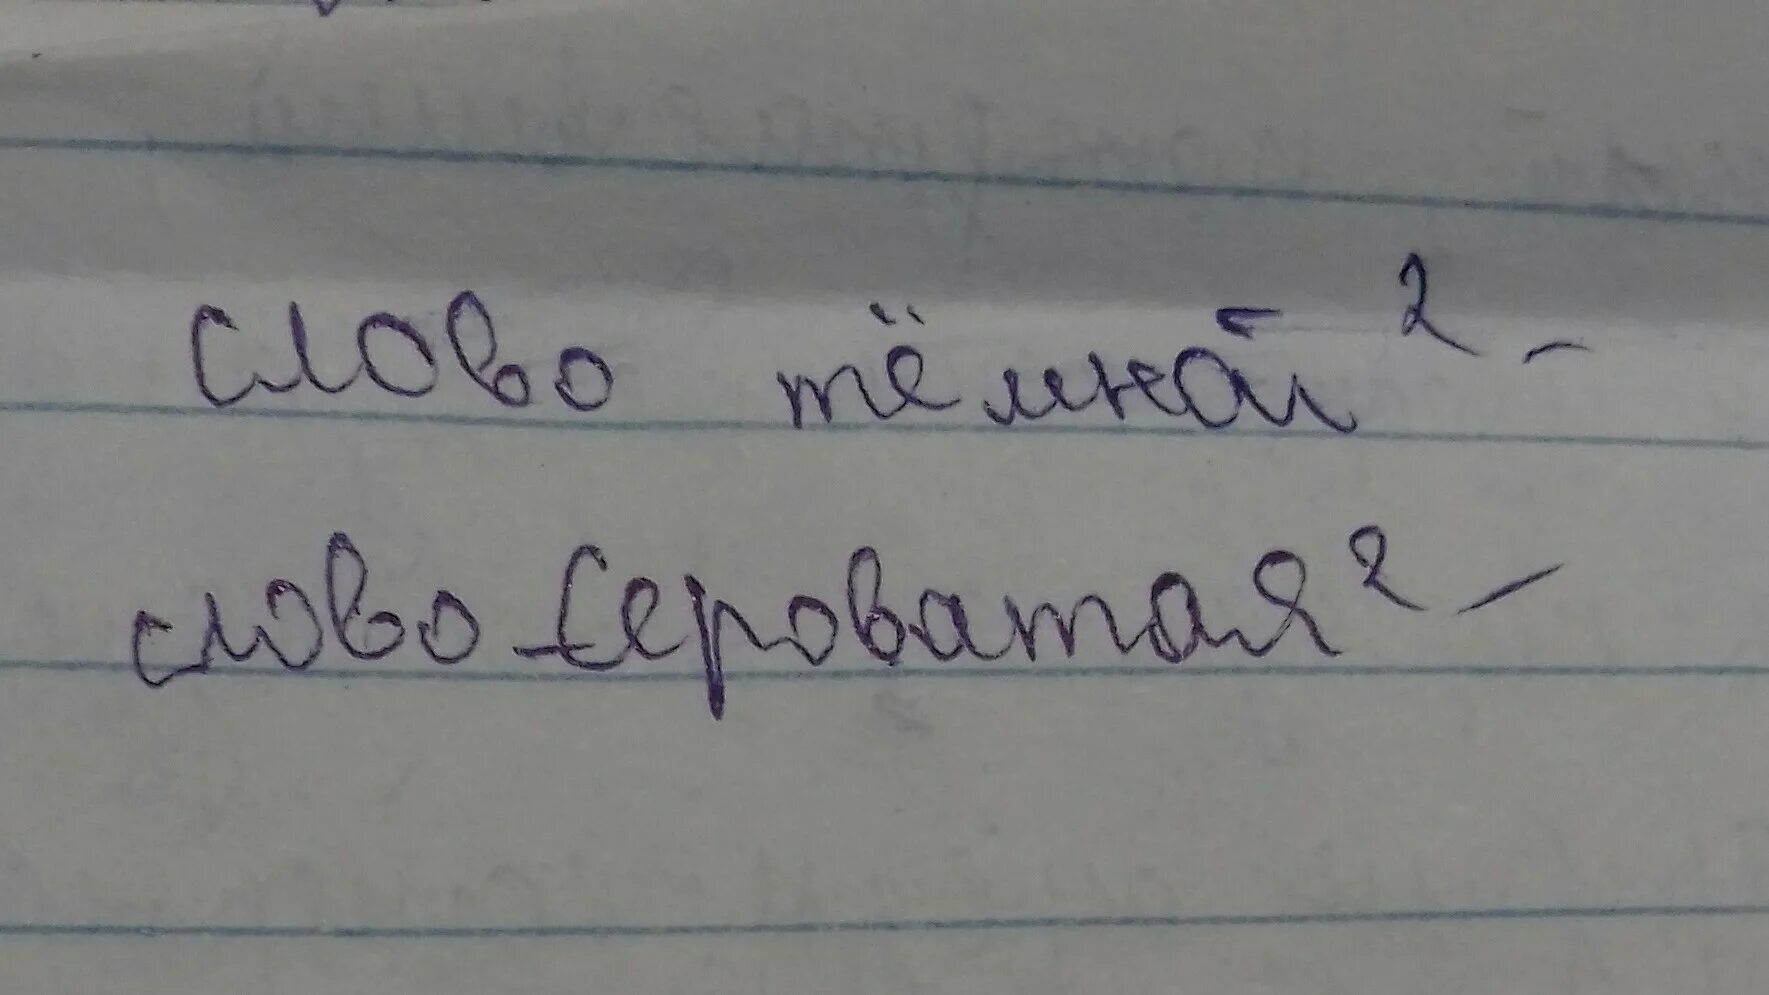 слово тёмной² -
слово сероватая² -